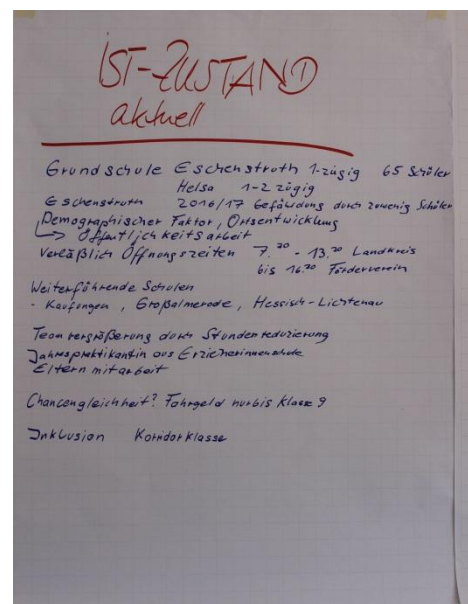 IST-ZUSTAND
aktuell
Grundschule Eschenstruth 1-zügig 65 Schüler
Helsa 1-2 zügig
Eschenstruth 2016/17 Gefährdung durch zuwenig Schüler
Demographischer Faktor, Ortsentwicklung
→ Öffentlichkeitsarbeit
Verläßlich Öffnungszeiten 7.30 - 13.30 Landkreis
bis 16.30 Förderverein
Weiterführende Schulen
- Kaufungen, Großalmerode, Hessisch-Lichtenau
Teamvergrößerung durch Stundenreduzierung
Jahrespraktikantin aus Erzieherinnenschule
Elternmitarbeit
Chancengleichheit? Fahrgeld nur bis Klasse 9
Inklusion Korridorklasse